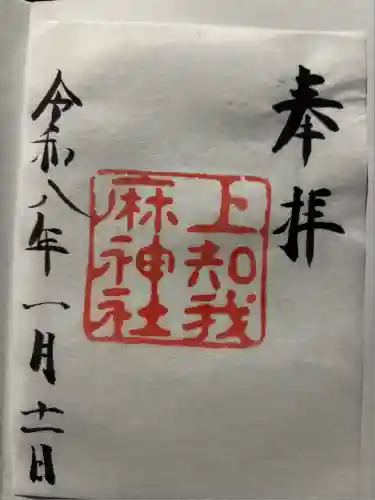 奉拝
上知我
麻神社
令和八年一月十一日